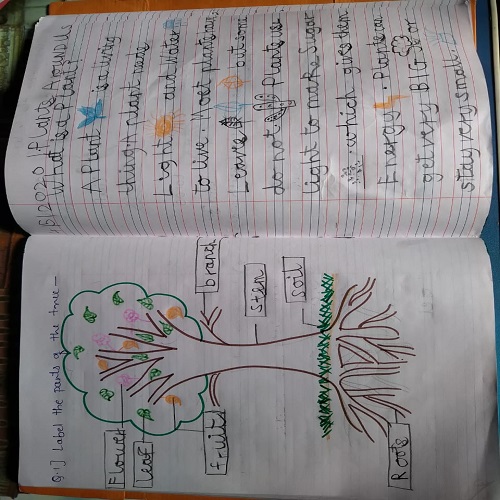 8/2020 Plants Around us
What is a Plant?
A Plant is a living
thing. A plant needs
Light and Water
to live. Most plants have
Leaves but some
do not Plants use
light to make Sugar
which gives them
Energy. Plants can
get very BIG or
stay very small.
Q.1] Label the parts of the tree-
Flower
leaf
fruit
branch
stem
soil
Roots